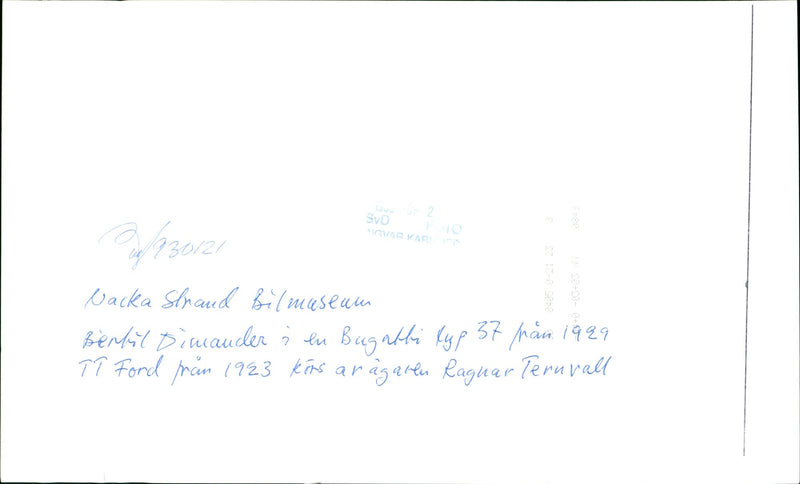 930121
SvD FOTO
Nacka Strand Bilmuseum
Bertil Dimander i en Bugatti typ 37 från 1929
TT Ford från 1923 körs av ägaren Ragnar Ternvall